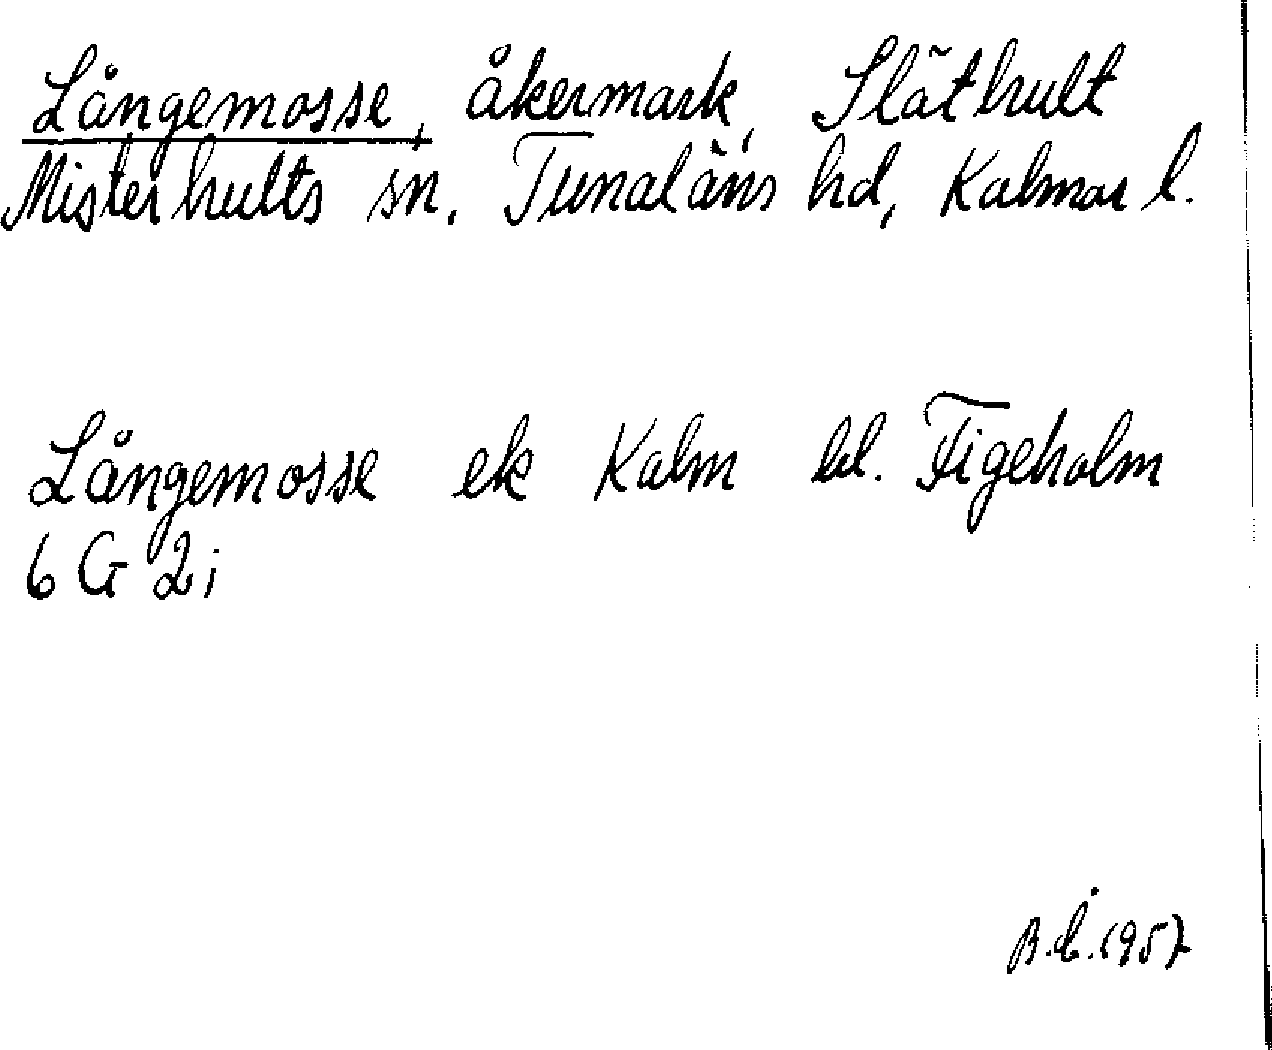 Långemosse, åkermark, Släthult
Misterhults sn. Tunaläns hd, Kalmar l.
Långemosse ek Kalm bl. Figeholm
6 G 2i
1957